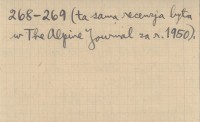 268-269 (ta sama recenzja była
w The Alpine Journal za r. 1950).